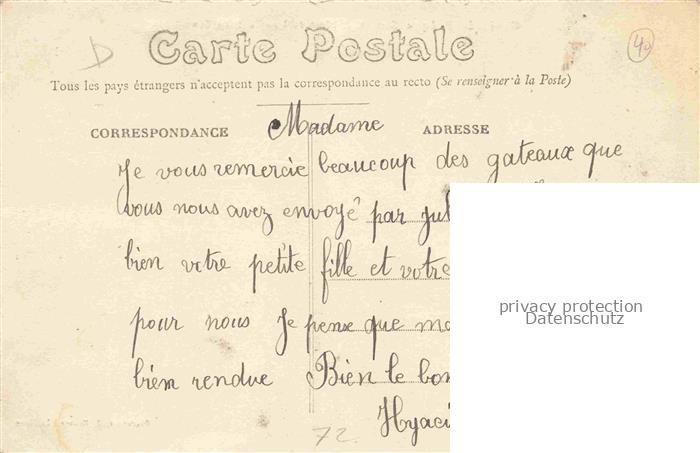 D
Carte Postale
40
Tous les pays étrangers n'acceptent pas la correspondance au recto (Se renseigner à la Poste)
CORRESPONDANCE
Madame
ADRESSE
Je vous remercie beaucoup des gateaux que
vous nous avez envoyé par Jul
bien votre petite fille et votre
pour nous Je pense que
bien rendue Bien le bon
Hyaci
72
privacy protection
Datenschutz